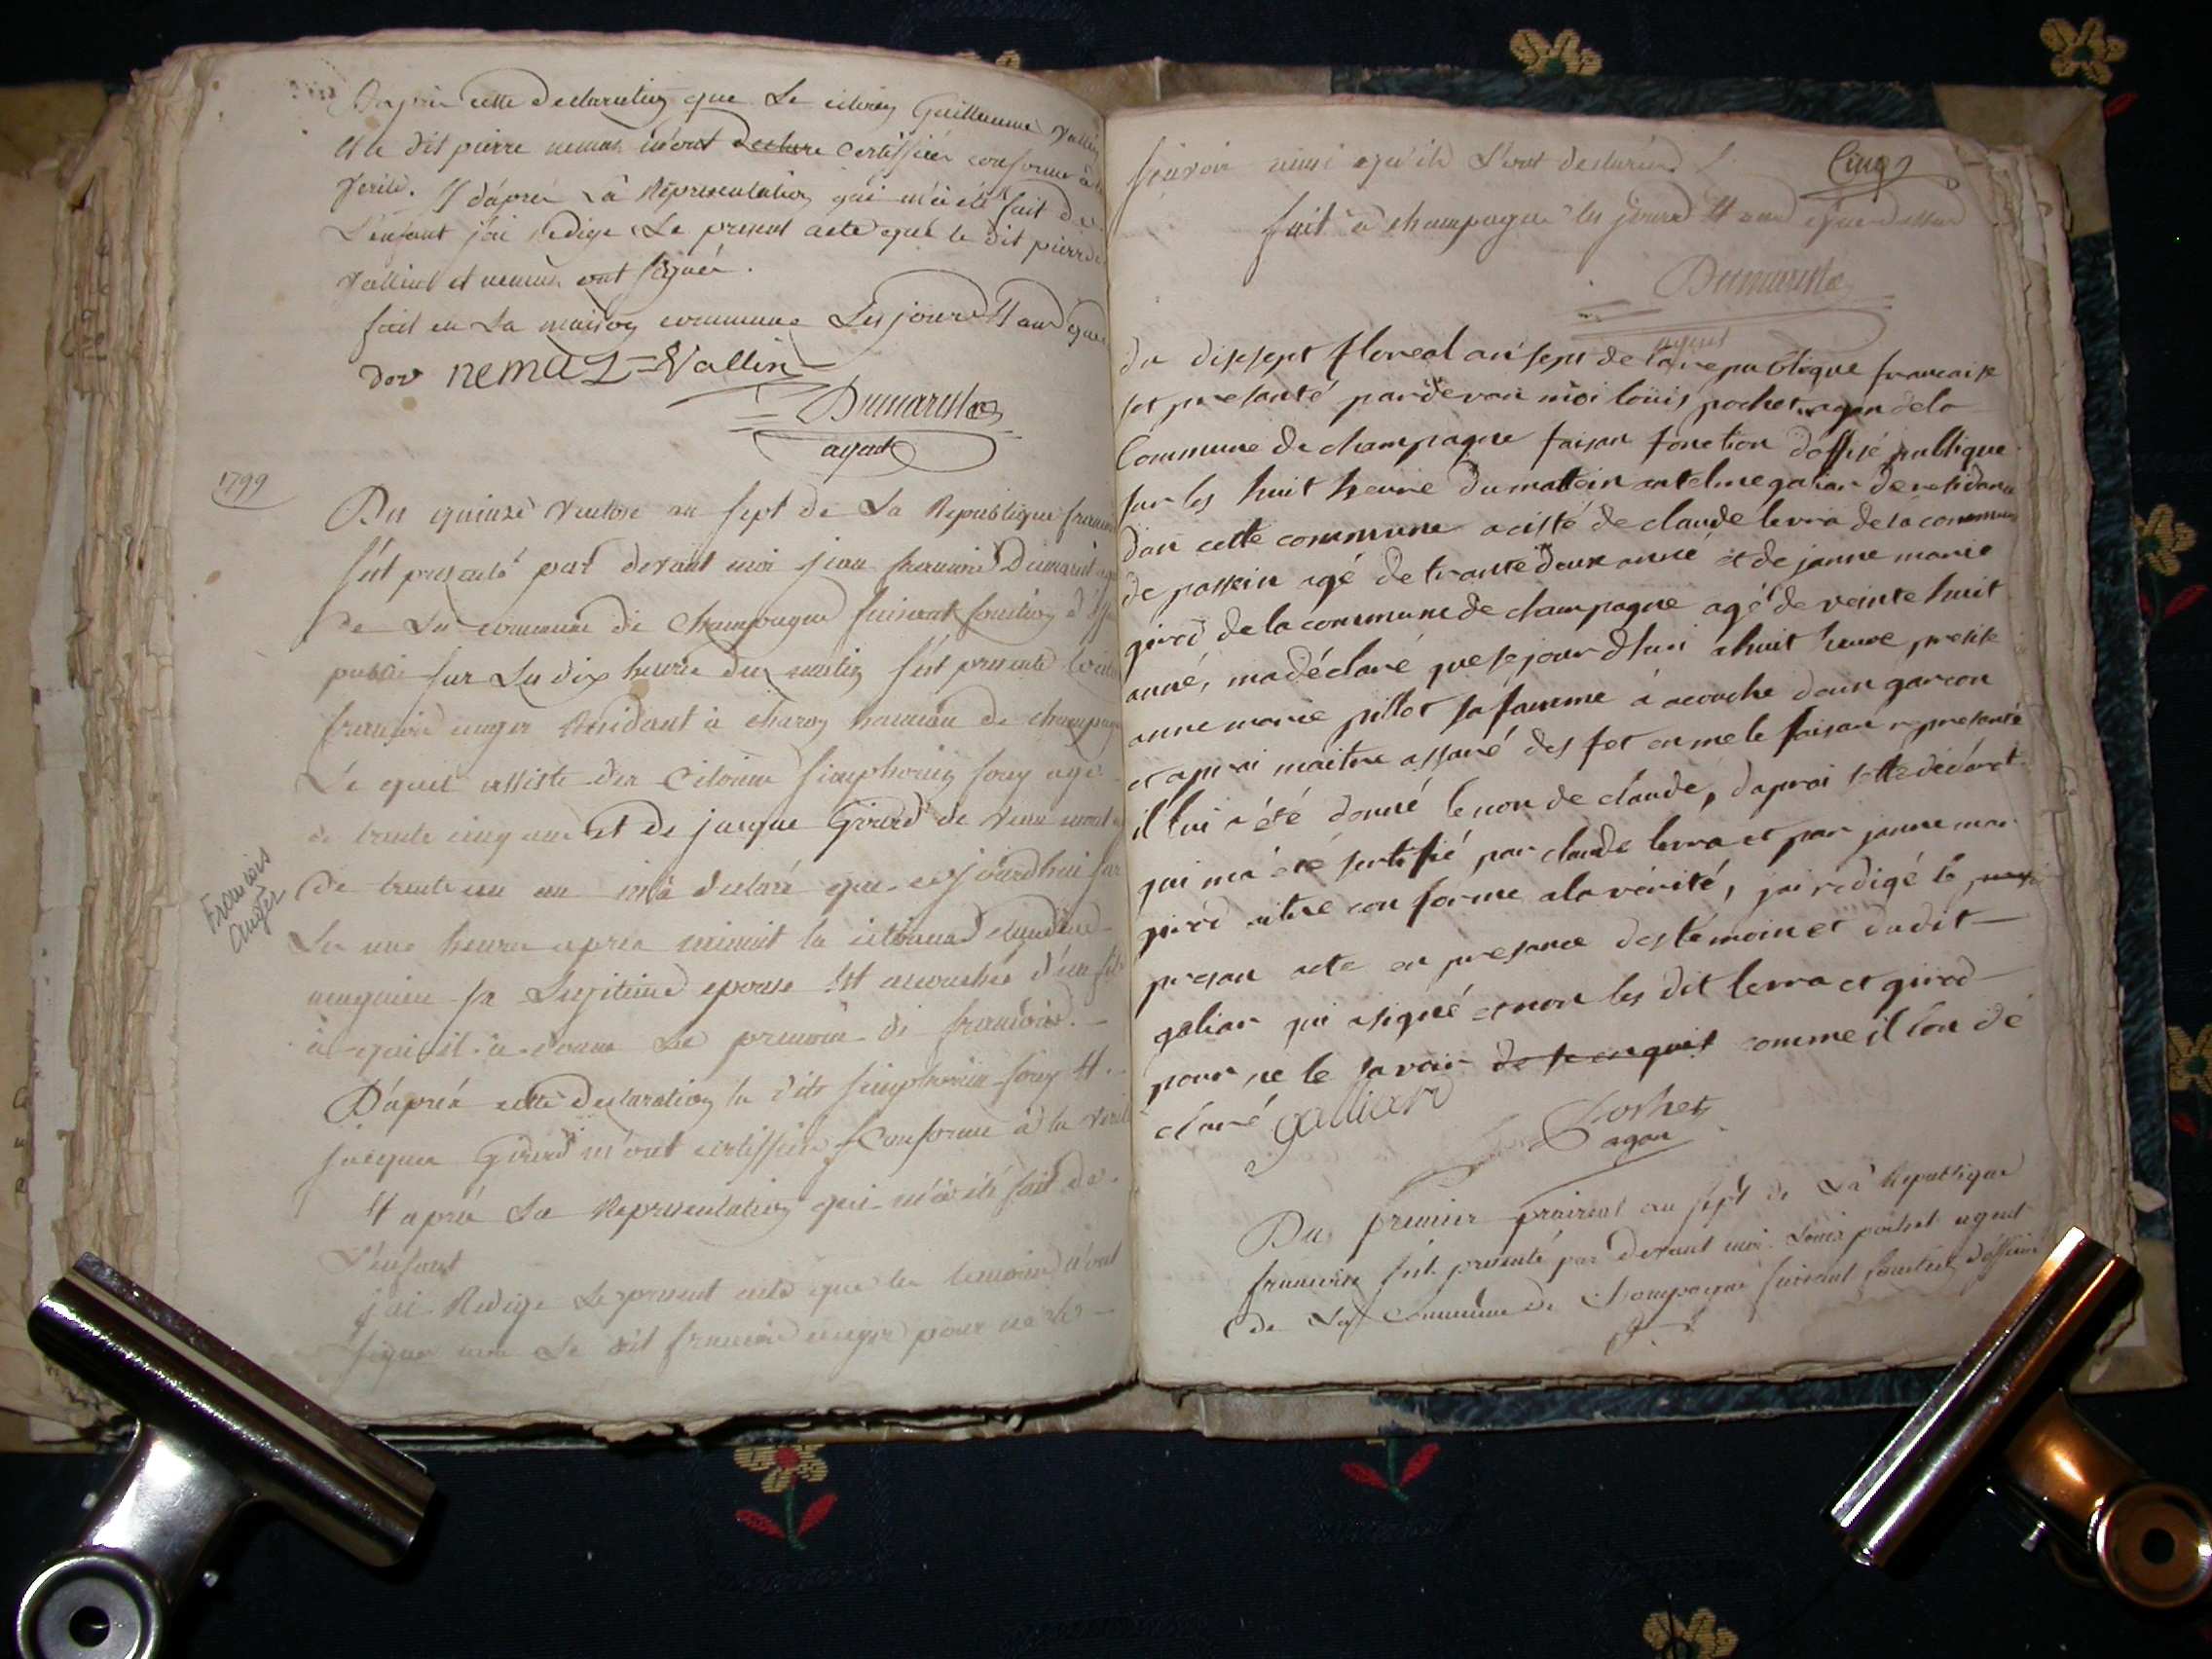 D'apres cette declaration que Le citoien Guillaume Vallin
Et le dit pierre nemoz m'ont declare certiffiée conforme à la
verité. Et d'aprés La Représentation qui m'a été fait de
L'enfant j'ai redigé Le present acte que le dit pierre
Vallin et nemoz ont signér.
fait en La maison commune Les jours Et and que
dor nemoz = Vallin
Dumarest
agent
1799
Du quinze ventose an sept de La Republique francai
s'est presenté par devant moi jean francois Dumarest
de La commune de Champagne faisant fonction d'
public sur Les dix heures du matin s'est presenté
francois auger Residant à charon hameau de champagne
Le quel assisté des Citoiens Simphorien fouy agé
de trente cinq ans et de jacque Girerd de
De trente un an m'a declaré que ce jourdhui sur
Les une heures apres minuit la citoiene
sa Legitime epouse Est accouchee d'un fils
à qui il a donné Le prenom de francois.
francois
auger
D'aprés cette declaration les dits simphorien fouy Et
jacques Girerd m'ont certiffier Conforme à la verité
Et aprés La Representation qui m'a été fait de
L'enfant
j'ai Redigé Le present acte que les temoins n'ont
signer non Le dit francois auger pour ne le
sçavoir ainsi qu'ils L'ont declarérd
Cinq
fait à champagne les jours Et and que dessus
Dumarest
agent
du dissept floreal an sept de la republique francaise
set presanté pardevan moi loüis pochet agan dela
Commune de champagne faisan fonction doffisé publique
sur les huit heure du matein antelme galian de residance
dan cette commune acisté de claude levra de la commune
de passein agé de trante deux anné et de janne marie
girod de la commune de champagne agé de veinte huit
anné, ma déclaré que se jour dhui a huit heure presise
anne marie pillot sa famme á acouché daun garcon
et aprai maitre assuré des fet en me le faisan represanté
il lui a été donné le non de claude, daprai sette déclarat
qui ma été sertifié par claude levra et par janne mari
girod aitre conforme ala vérité, jai redigé le
presan acte en presance des temoin et du dit
galian qui a signé et non les dit levra et girod
pour ne le savoir de se enquit comme il lon dé
claré galliard
Poshet
agan
Du premier prairial an sept de La Republique
francoise s'est presenté par devant moi Louis pochet agent
de La Commune de Champagne faisant fonction d'officié